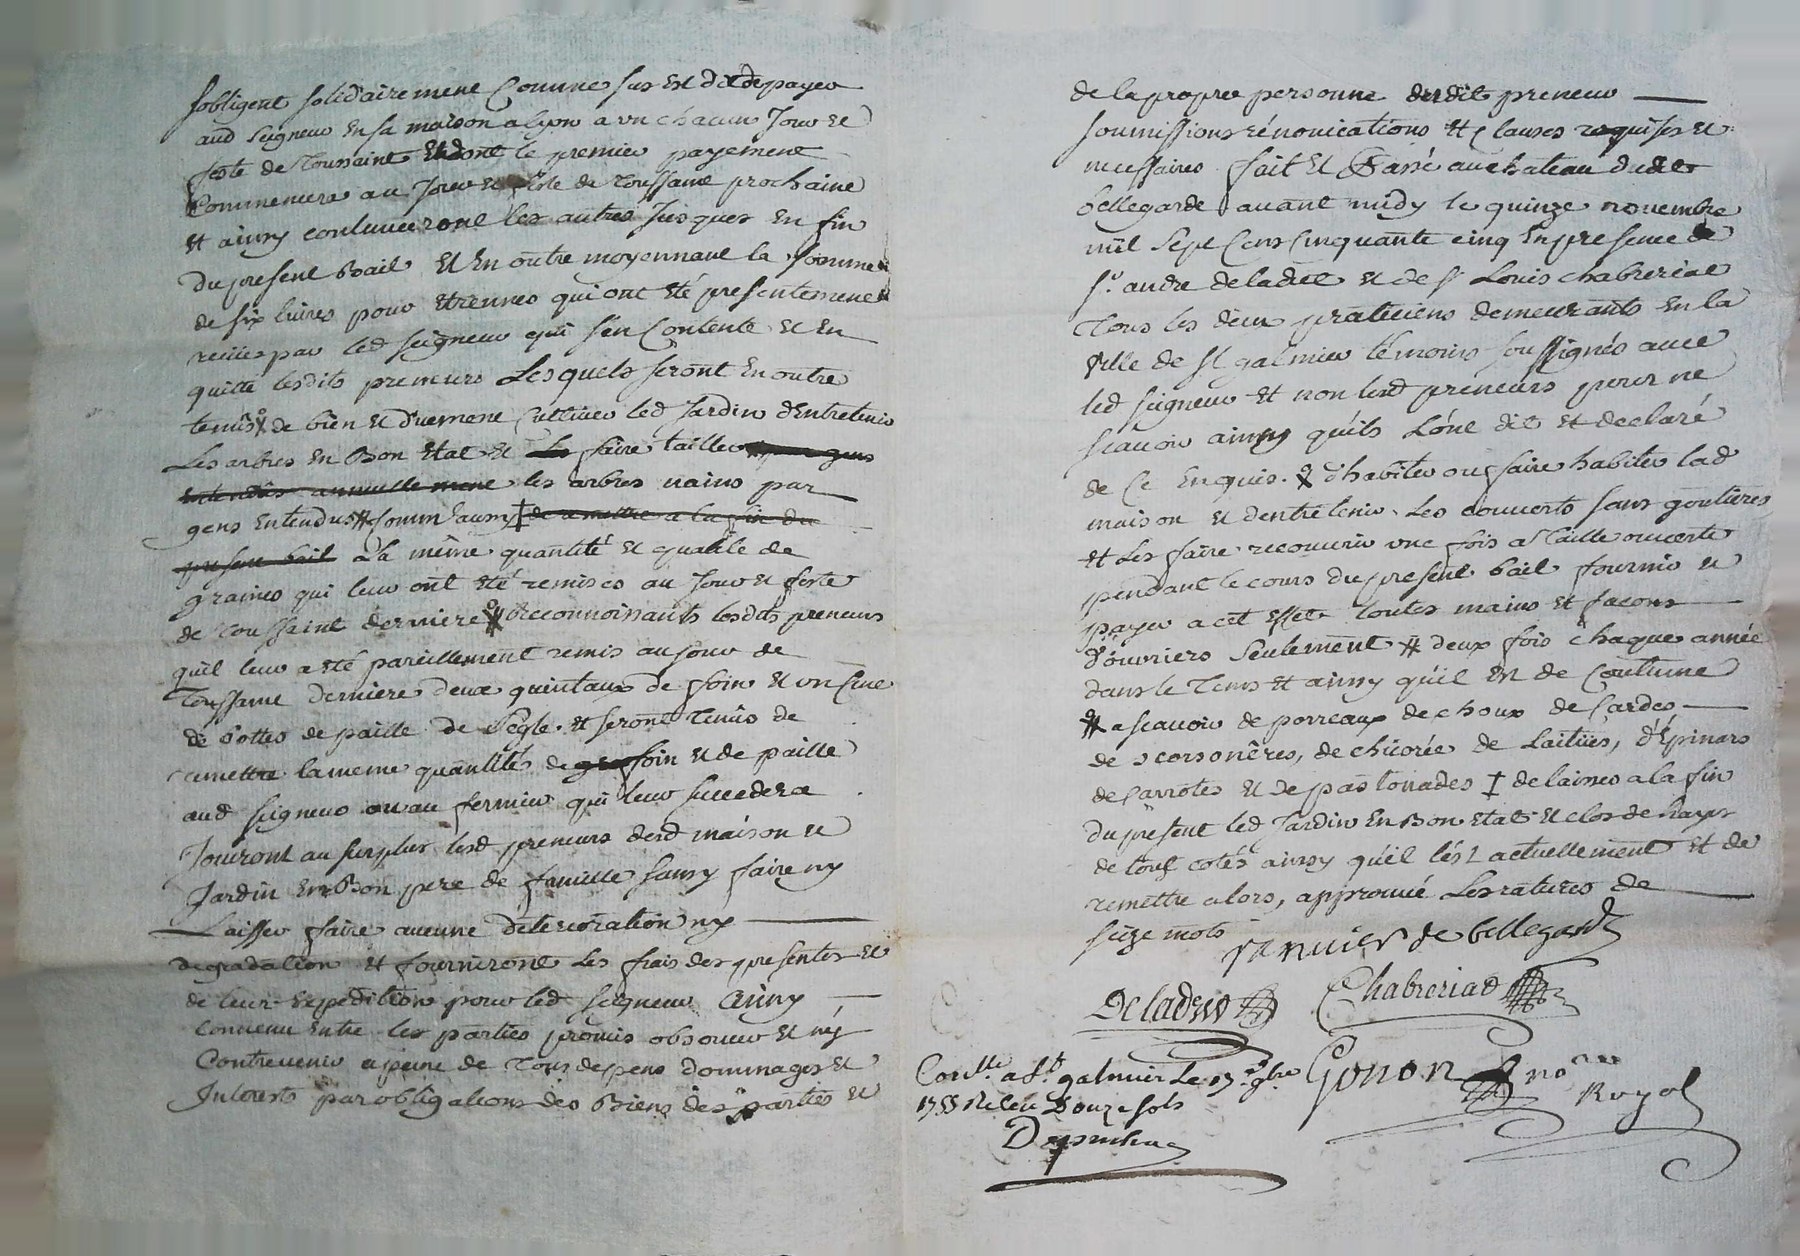 sobligent solidairement Comme sus Est dit de payer
aud seigneur En sa maison a lyon a un chacun Jour et
feste de Toussaint Et dont le premier payement
Commencera au Jour et feste de Toussaint prochaine
Et ainsy continueront les autres Jusques En fin
Du present Bail Et En outre moyennant la somme
de six livres pour Etrennes qui ont été presentement
reciies par led seigneur qui s'en Contente Et En
quitte lesdits preneurs Lesquels seront En outre
tenûs de bien Et duement Cultiver led Jardin d'Entretenir
Les arbres En Bon Etat Et Les faire tailler par gens
Entendûs annuellement les arbres nains par
gens Entendus # comm'aussy † de remettre a la fin du
present bail a la même quantité Et qualité de
graines qui leur ont été remises au Jour et feste
de Toussaint derniere # Reconnoissants lesdits preneurs
quil leur a été pareillement remis au jour de
Toussaint derniere deux quintaux de foin Et un Cent
de bottes de paille de Segle. Et seront Tenûs de
remettre la meme quantité de foin Et de paille
aud seigneur ou au fermier qui leur succedera
Jouiront au surplus lesd preneurs desd maison Et
Jardin En Bon pere de famille sans y faire ny
Laisser faire aucune déterioration ny
degradation Et fourniront Les frais des presentes Et
de leur Expedition pour led seigneur Ainsy
Convenu Entre les parties promis observer Et ny
Contrevenir a peine de Tous depens dommages Et
Interests par obligations des Biens des parties Et
de la propre personne desdit preneur
soumissions rénonciations Et Clauses requises Et
necessaires fait Et Passé au chateau dudit
bellegarde avant midy le quinze novembre
mil sept Cens Cinquante cinq En presence de
sr. andre deladret et de sr Louis chabreriat
Tous les deux praticiens demeurants En la
ville de st galmier témoins soussignés avec
led seigneur Et non lesd preneurs pour ne
scavoir ainsy qu'ils L'ont dit Et declaré
de Ce Enquis. d'habiter ou faire habiter lad
maison Et d'entretenir Les couverts sans goutieres
Et Les faire recouvrir une fois a Taille ouverte
pendant le cours du present bail fournir Et
payer a cet Effet toutes mains Et facons
d'ouvriers Seulement # deux fois chaque année
dans le Tems Et ainsy qu'il Est de Coutume
# a scavoir de porreaux de choux de Cardes
de scorsonêres, de chicorée de Laitües, d'Epinars
de Carrotes Et de pastonades † de laisser a la fin
du present led Jardin En Bon Etat Et clos de hayes
de tout cotés ainsy qu'il l'est actuellement Et de
remettre alors, approuvé Les ratures de
seize mots
Janvier de bellegarde
Deladret Chabreriat
Conlle. a St. galmier Le 17e. 9bre Gonon nore
1755 Releu Douze sols Royal